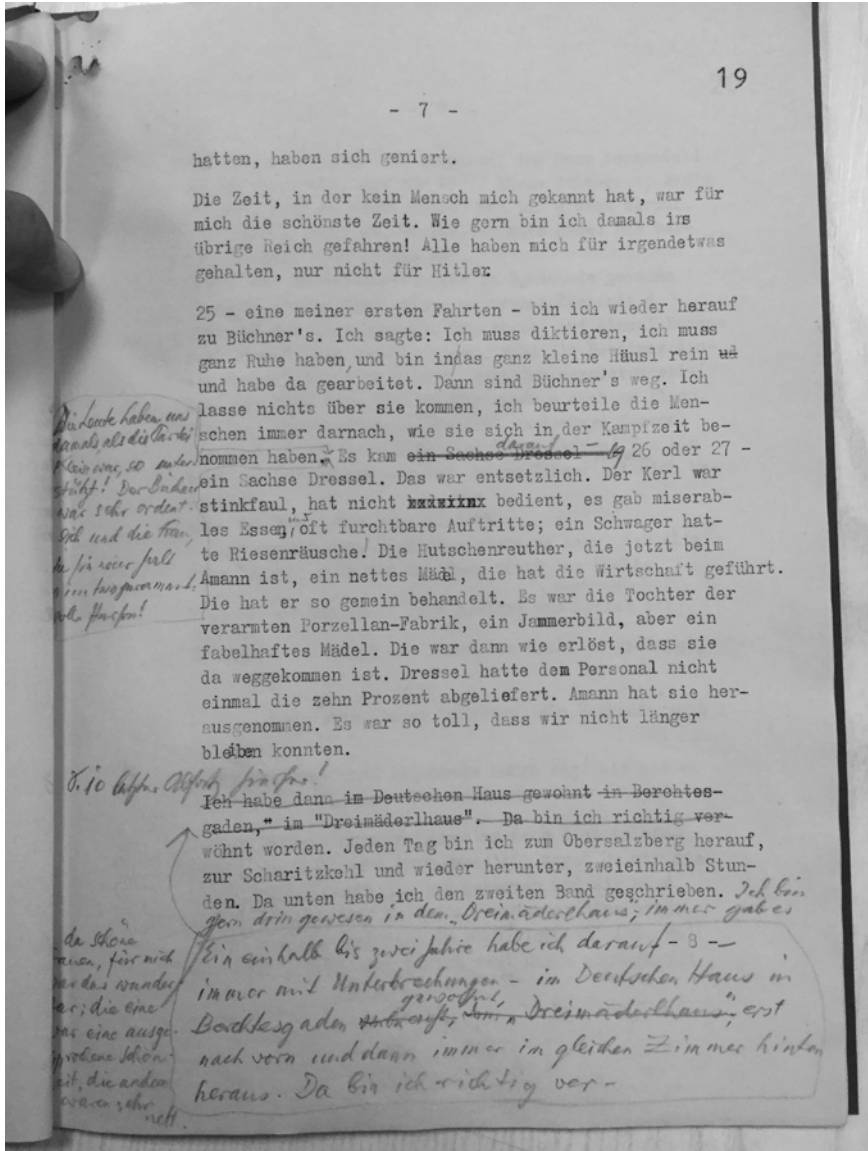 19
- 7 -
hatten, haben sich geniert.
Die Zeit, in der kein Mensch mich gekannt hat, war für
mich die schönste Zeit. Wie gern bin ich damals ins
übrige Reich gefahren! Alle haben mich für irgendetwas
gehalten, nur nicht für Hitler.
25 - eine meiner ersten Fahrten - bin ich wieder herauf
zu Büchner's. Ich sagte: Ich muss diktieren, ich muss
ganz Ruhe haben, und bin in das ganz kleine Häusl rein ud
und habe da gearbeitet. Dann sind Büchner's weg. Ich
lasse nichts über sie kommen, ich beurteile die Men-
schen immer darnach, wie sie sich in der Kampfzeit be-
darauf -
nommen haben. Es kam ein Sachse Dressel - 19 26 oder 27 -
ein Sachse Dressel. Das war entsetzlich. Der Kerl war
stinkfaul, hat nicht bedient, es gab miserab-
les Essen, oft furchtbare Auftritte; ein Schwager hat-
te Riesenräusche! Die Hutschenreuther, die jetzt beim
Amann ist, ein nettes Mädel, die hat die Wirtschaft geführt.
Die hat er so gemein behandelt. Es war die Tochter der
verarmten Porzellan-Fabrik, ein Jammerbild, aber ein
fabelhaftes Mädel. Die war dann wie erlöst, dass sie
da weggekommen ist. Dressel hatte dem Personal nicht
einmal die zehn Prozent abgeliefert. Amann hat sie her-
ausgenommen. Es war so toll, dass wir nicht länger
bleiben konnten.
Die Leute haben uns
damals, als die Partei
klein war, so unter-
stützt! Der Büchner
war sehr ordent-
lich und die Frau,
letzter
Ich habe dann im Deutschen Haus gewohnt in Berchtes-
gaden," im "Dreimäderlhaus". Da bin ich richtig ver-
wöhnt worden. Jeden Tag bin ich zum Obersalzberg herauf,
zur Scharitzkehl und wieder herunter, zweieinhalb Stun-
den. Da unten habe ich den zweiten Band geschrieben. Ich bin
gern drin gewesen in dem "Dreimäderlhaus"; immer gab es
da schöne
Frauen, für mich
war das wunder-
bar; die eine
war eine ausge-
sprochene Schön-
heit, die andern
waren sehr
nett.
Ein einhalb bis zwei Jahre habe ich darauf - 8 -
immer mit Unterbrechungen - im Deutschen Haus in
gewohnt,
Berchtesgaden "Dreimäderlhaus", erst
nach vorn und dann immer im gleichen Zimmer hinten
heraus. Da bin ich richtig ver-